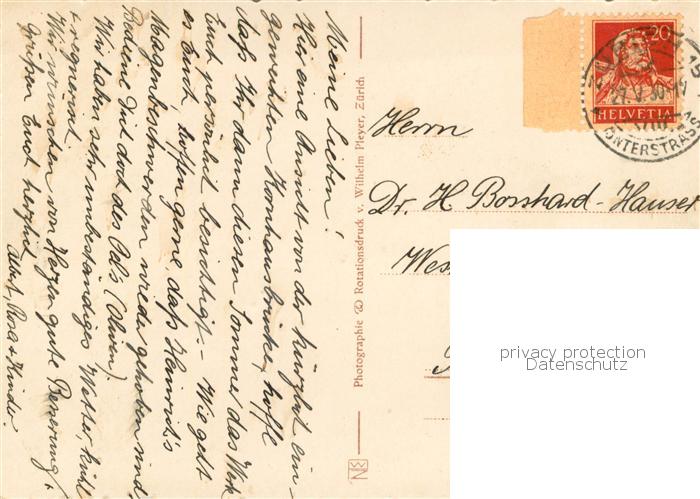 Meine Lieben!
Hier eine Ansicht von der kürzlich ein-
geweihten Kornhausbrücke, hoffe
daß Ihr dann diesen Sommer das Werk
Euch persönlich besichtigt. – Wie geht
es Euch, hoffen gerne, daß Heinrich's
Magenbeschwerden wieder gehoben sind.
Badeine Tid doch des Oels (Olium).
Wir haben sehr unbeständiges Wetter, kühl
+ regnerisch
Wir wünschen von Herzen gute Besserung +
grüßen Euch herzlich
Albert, Rosa + Kinder.
Photographie & Rotationsdruck v. Wilhelm Pleyer, Zürich
20
HELVETIA
15
27.V.30
Herrn
Dr. H. Bosshard-Hauser
Wes
privacy protection
Datenschutz